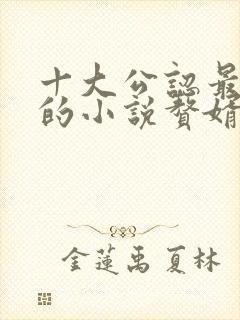 十大公認最
的小説贅婿
金蓮禹夏林